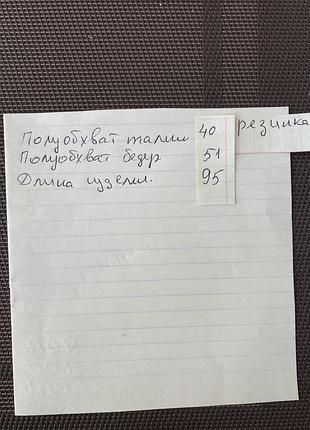 Полуобхват талии 40 резинка
Полуобхват бедер 51
Длина изделия. 95